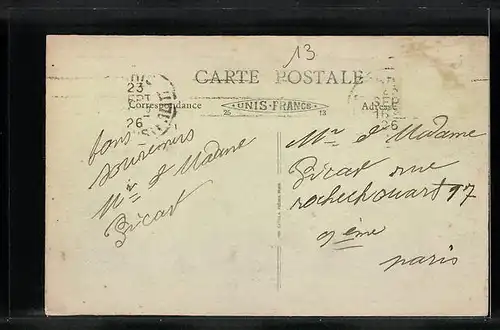 13
CARTE POSTALE
Correspondance
UNIS-FRANCE
25 13
Adresse
23
26
bons
souvenirs
Mr et Madame
Bicat
Mr et Madame
Bicat rue
rochechouart 97
9 ème
paris